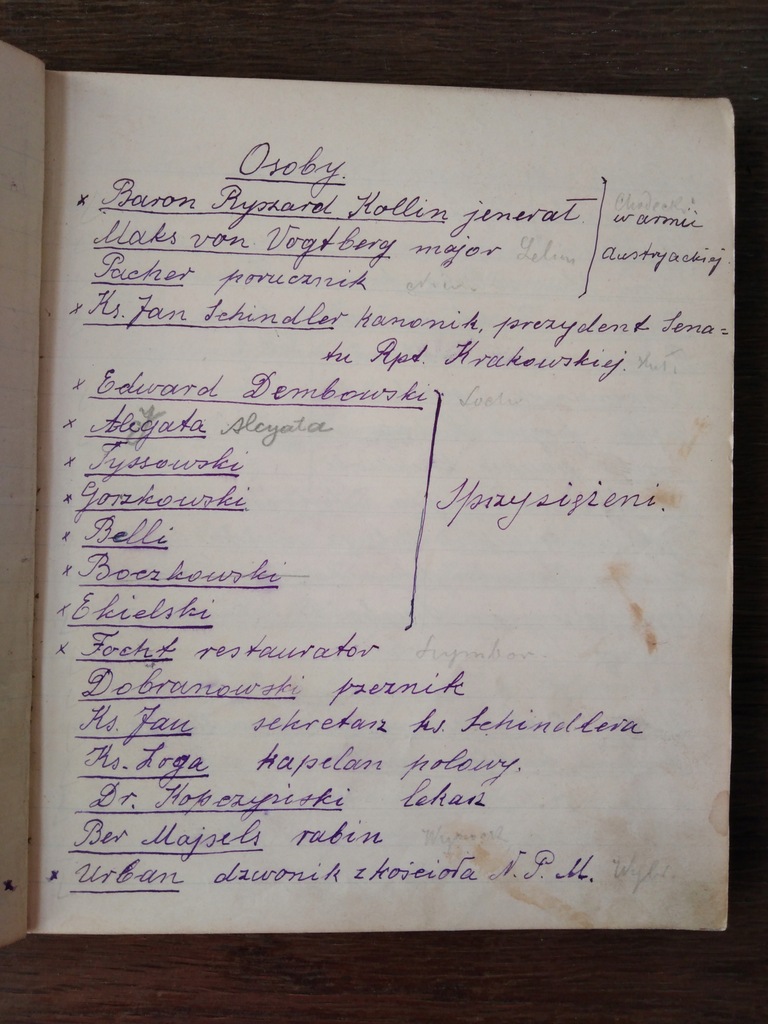 Osoby.
x Baron Ryszard Kollin jenerał w armii
Maks von Vogtberg major austryackiej.
Pacher porucznik
x Ks. Jan Schindler kanonik, prezydent Sena=
tu Rpt. Krakowskiej.
x Edward Dembowski
x Alcgata Alcyata
x Tyssowski
x Gorzkowski Sprzysiężeni.
x Belli
x Boczkowski
x Ekielski
x Focht restaurator
Dobranowski
Ks. Jan sekretarz ks. Schindlera
Ks. Loga kapelan polowy.
Dr. Kopczyński lekarz
Ber Majsels rabin
x Urban dzwonik z kościoła N. P. M.